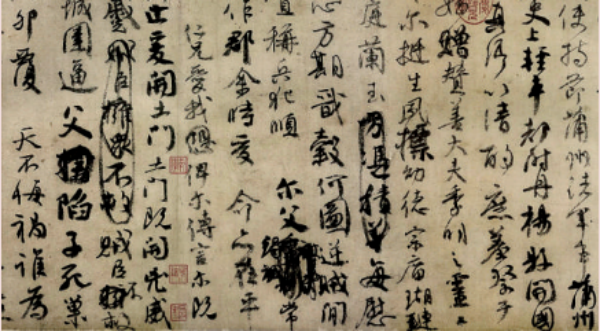 使持節蒲州諸軍事蒲州
史上輕車都尉丹楊縣開國
真卿以清酌庶羞祭于
贈贊善大夫季明之靈曰
爾挺生夙標幼德宗廟瑚璉
庭蘭玉方憑積善每慰
心方期戩穀何圖逆賊閒
稱兵犯順爾父竭誠常
作郡余時受命亦在平
仁兄愛我恐俾爾傳言爾既
止爰開土門土門既開凶威
蹙賊臣擁衆不救賊臣不救
城圍逼父陷子死巢
卵覆天不悔禍誰為